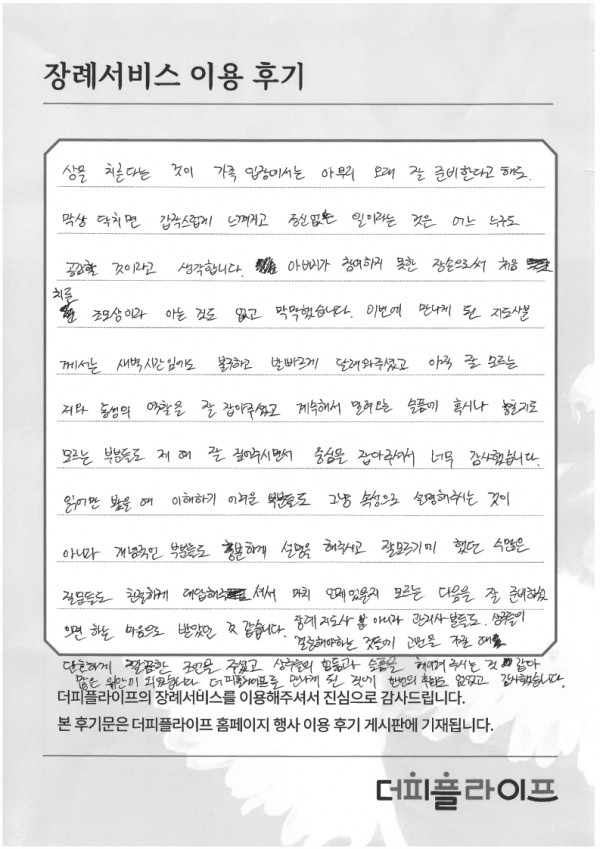 장례서비스 이용 후기
상을 치른다는 것이 가족 입장에서는 아무리 오래 잘 준비한다고 해도
막상 닥치면 갑작스럽게 느껴지고 정신없는 일이라는 것은 어느 누구도
공감할 것이라고 생각합니다. 아버지가 참여하지 못한 장손으로써 처음
치룬 조모상이라 아는 것도 없고 막막했습니다. 이번에 만나게 된 지도사분
께서는 새벽시간임에도 불구하고 발빠르게 달려와주셨고 아직 잘 모르는
저와 동생의 역할을 잘 잡아주셨고 계속해서 밀려오는 슬픔에 혹시나 놓칠지도
모르는 부분들도 제 때 잘 짚어주시면서 중심을 잡아주셔서 너무 감사했습니다.
읽어만 봤을 때 이해하기 어려운 부분들도 그냥 속성으로 설명해주시는 것이
아니라 개념적인 부분들도 충분하게 설명을 해주시고 잘모르기에 했던 수많은
질문들도 친절하게 대답해주셔서 마치 언제있을지 모르는 다음을 잘 준비했
으면 하는 마음으로 받았던 것 같습니다. 장례지도사 뿐 아니라 관리사분들도, 상주들이
결정해야하는 것들에 고민을 가질 때
단호하게 깔끔한 조언을 주셨고 상주들의 힘듦과 슬픔을 헤아려 주시는 것 같아
많은 위안이 되었습니다. 더피플라이프로 만나게 된 것이 한번의 후회도 없었고 감사했습니다.
더피플라이프의 장례서비스를 이용해주셔서 진심으로 감사드립니다.
본 후기문은 더피플라이프 홈페이지 행사 이용 후기 게시판에 기재됩니다.
더피플라이프